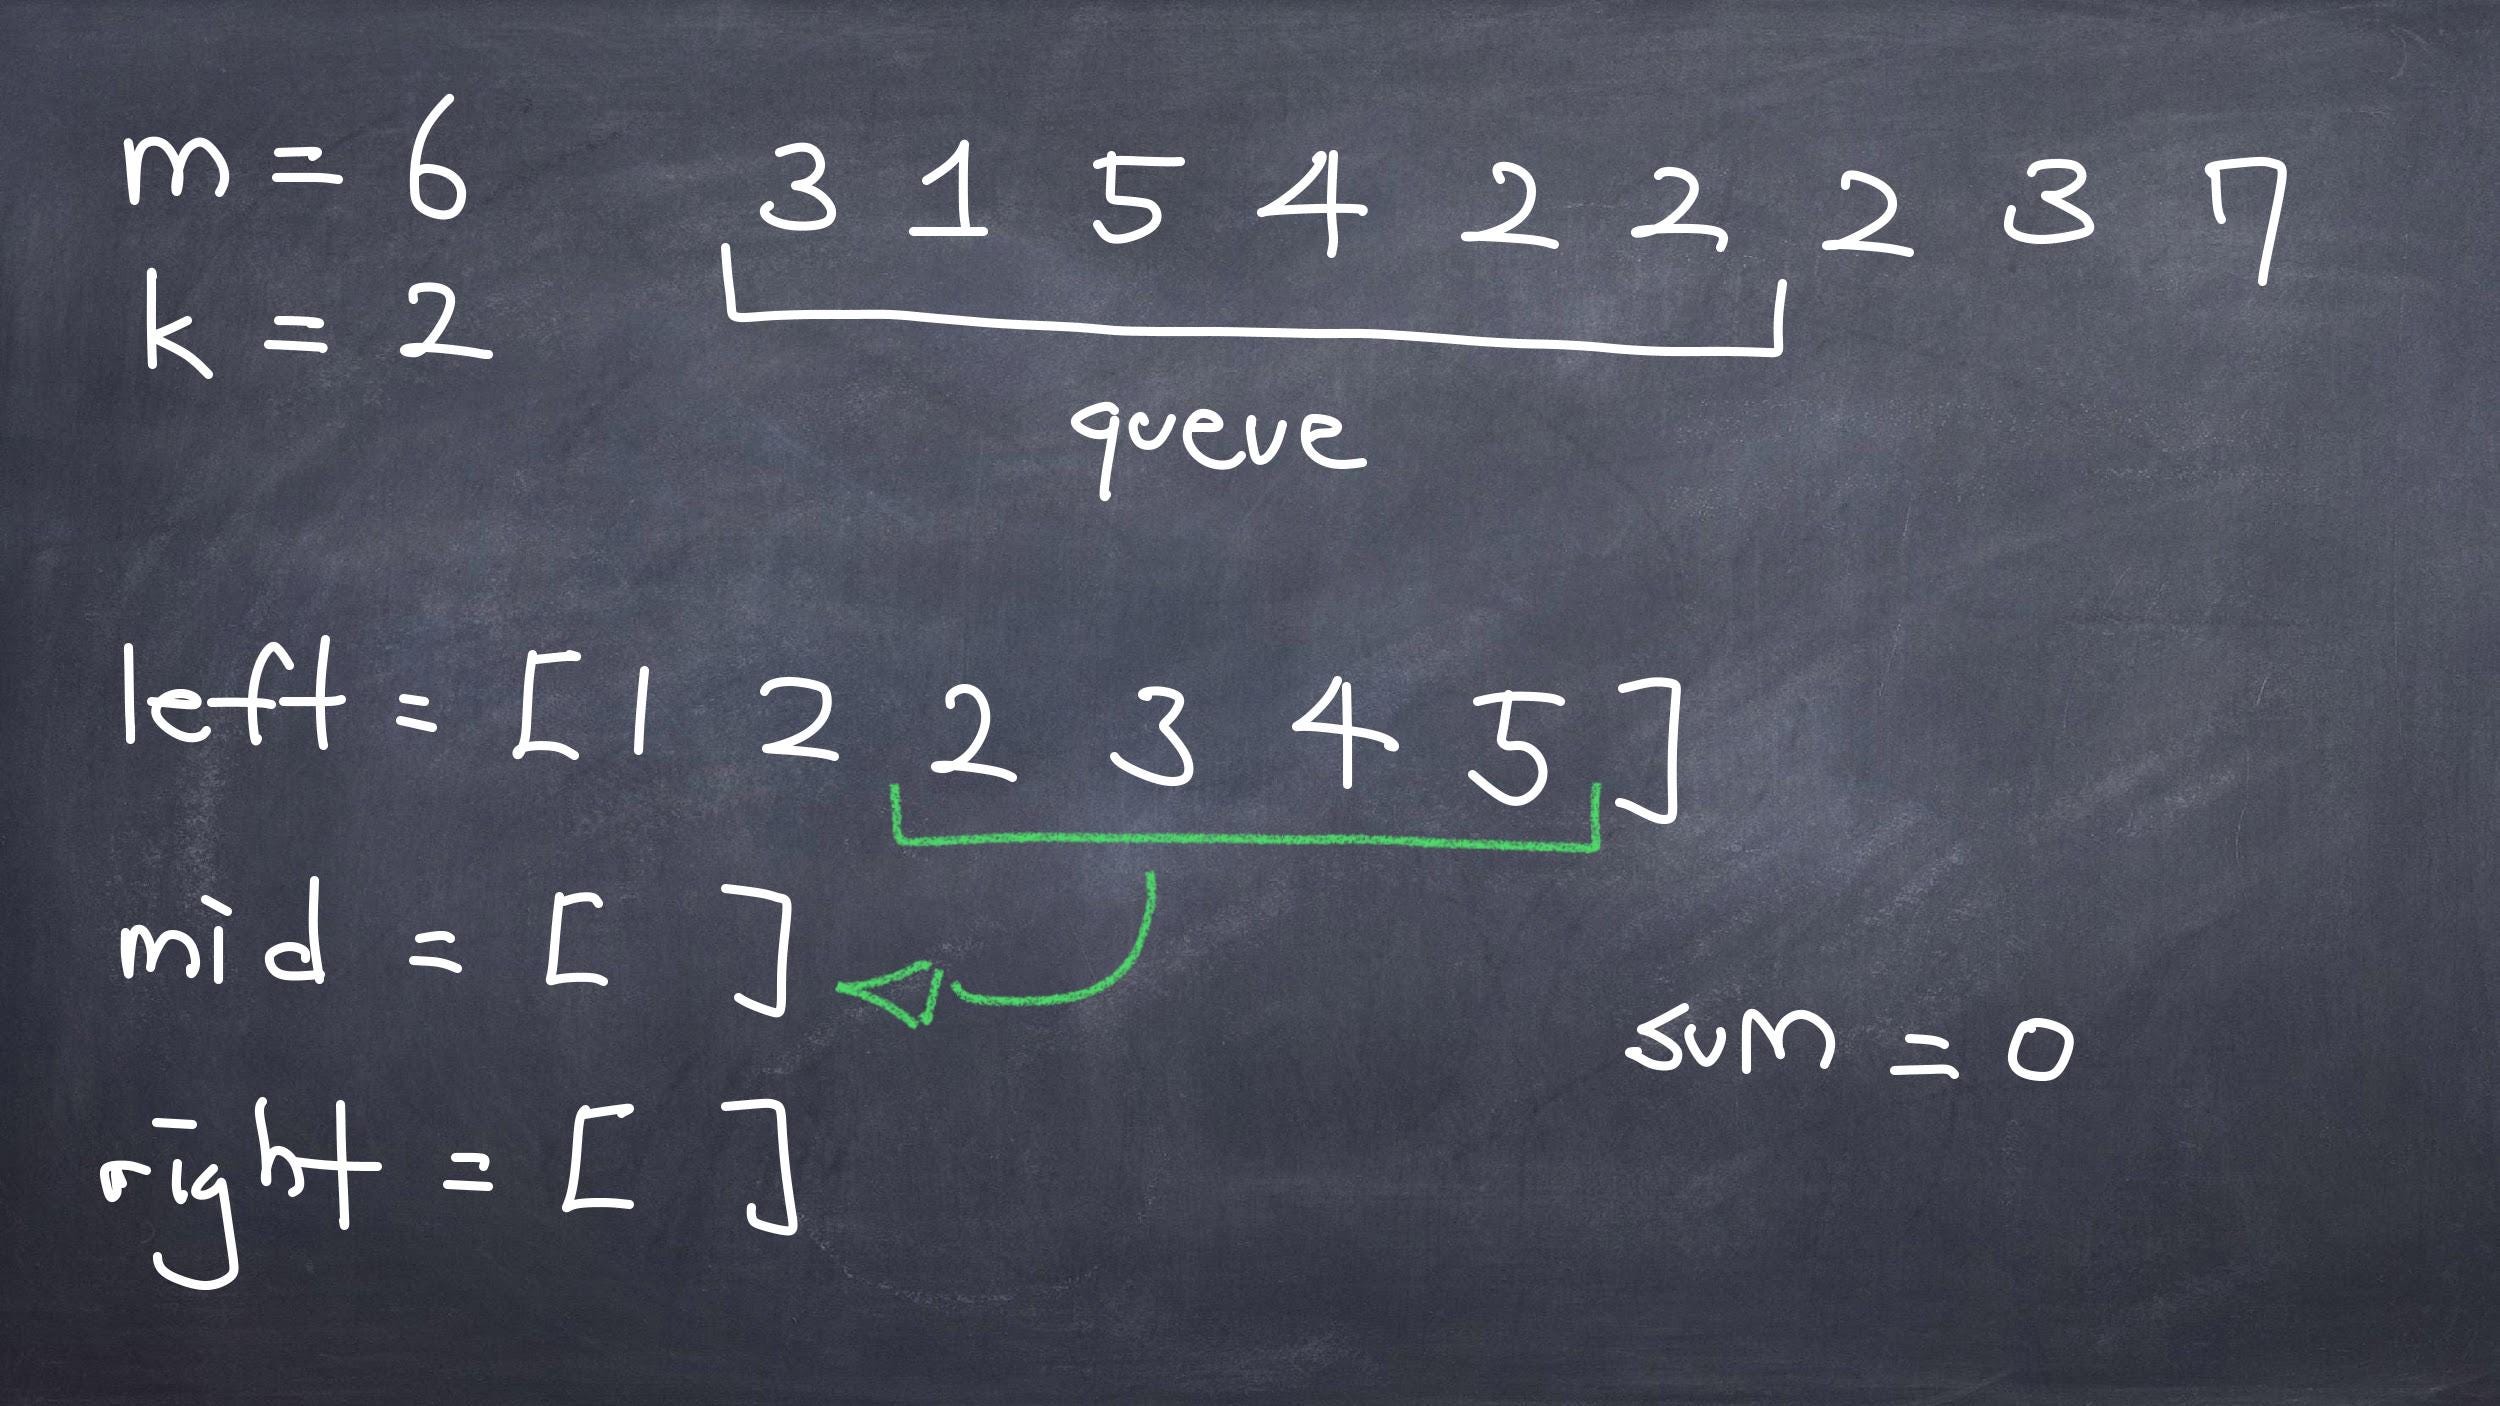 m = 6
3 1 5 4 2 2 2 3 7
k = 2
queue
left = [1 2 2 3 4 5]
mid = [ ]
sum = 0
right = [ ]